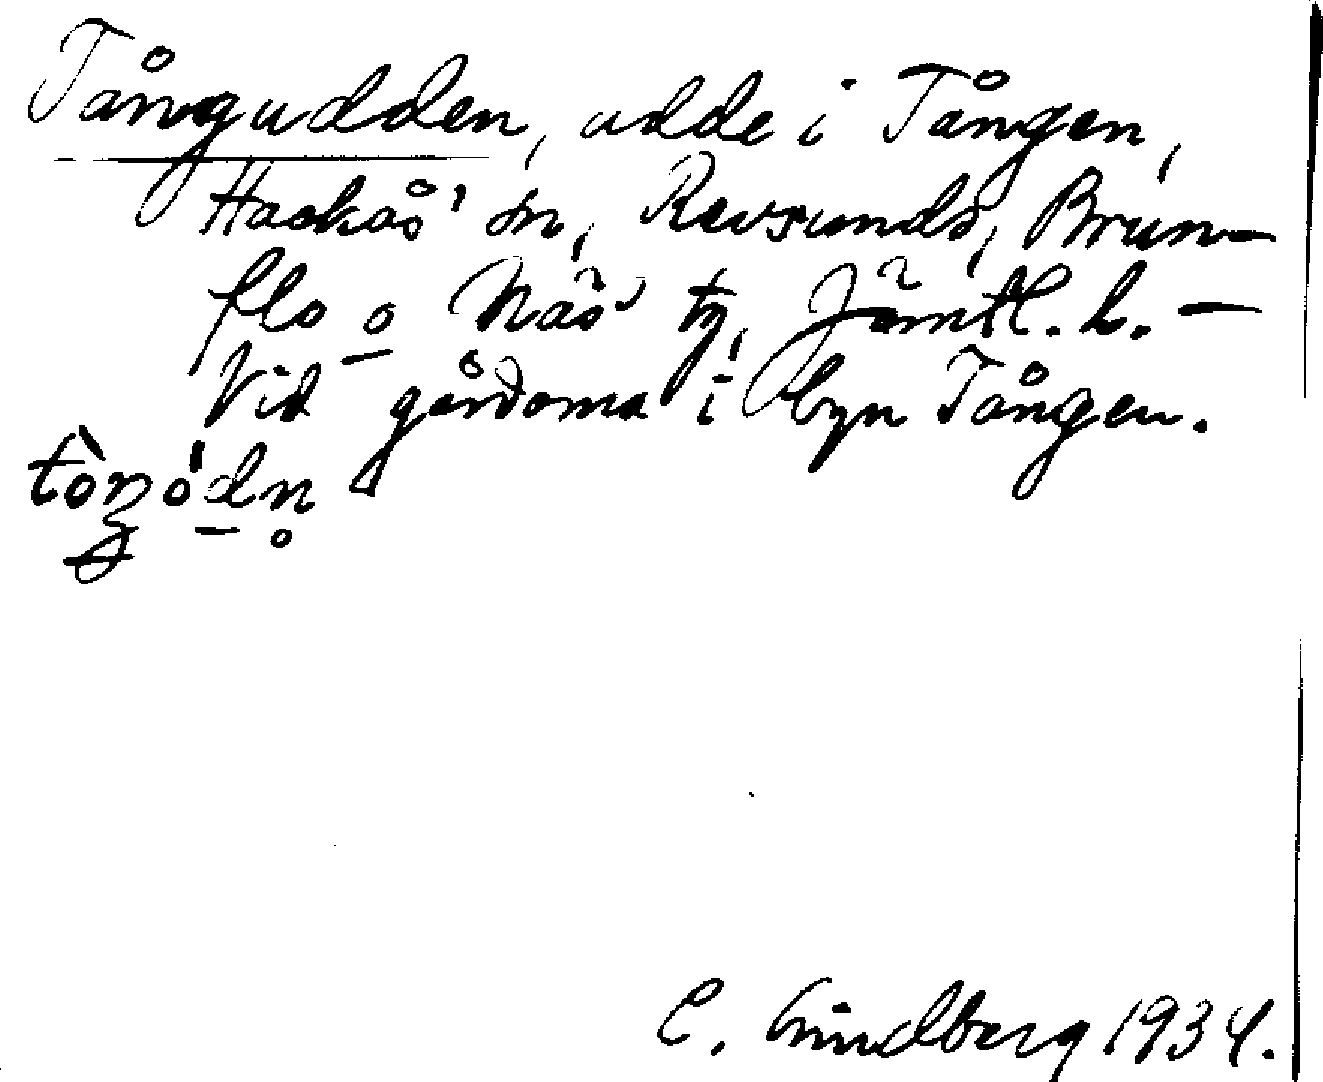 Tångudden, udde i Tången,
Hackås' sn, Revsunds, Brun-
flo o Näs tg, Jämtl. l. —
Vid gårdarna i byn Tången.
C. Lindberg 1934.